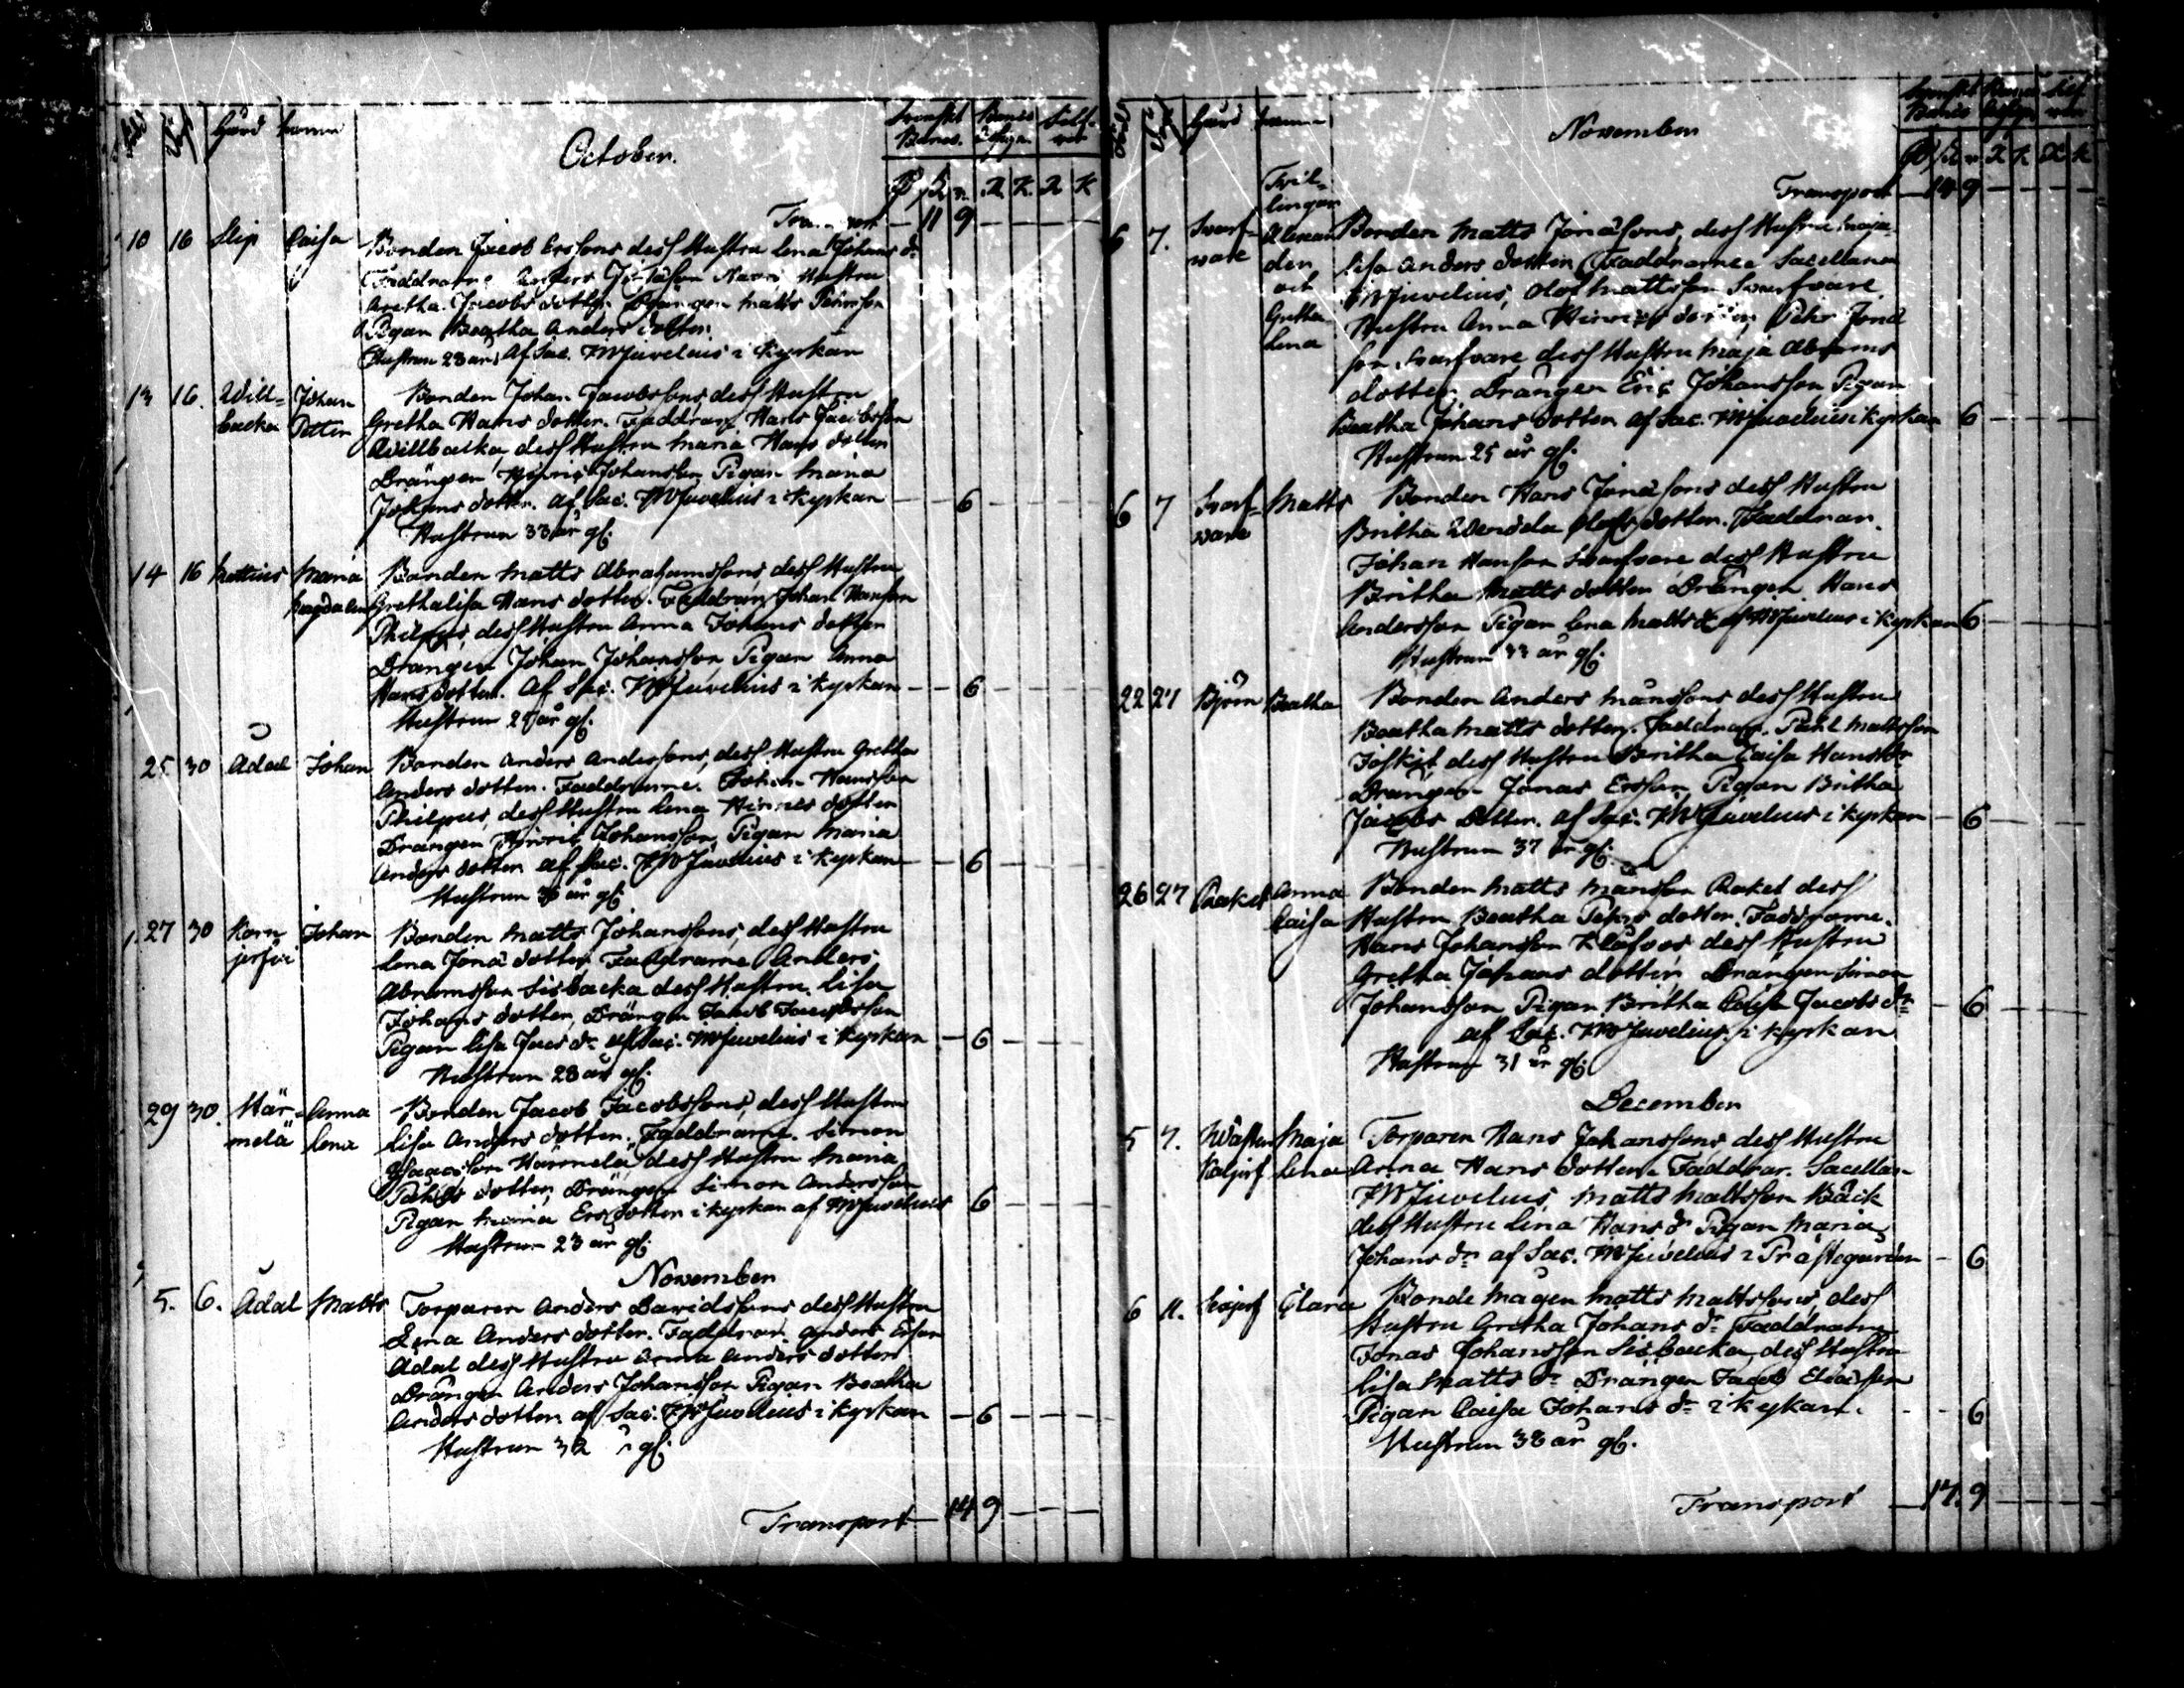 Gård namn
October.
Svenskt Banco.
11 9
10 16 Slip Caisa Bonden Jacob Erssons dess Hustru Lena Johans dr
Faddrarne Anders Hustru
Gretha Jacobs dotter Drängen Matts
Pigan Beatha Anders dotter
Hustrun 28 år, af Sac. FWJuvelius i Kyrkan
13 16. Will= Johan Bonden Johan Jacobssons dess Hustru
backa Petter Gretha Hans dotter. Faddrar Hans Jacobsson
Willbacka dess Hustru Maria Hans dotter
Drängen Hinric Johansson Pigan Maria
Johans dotter. af Sac. FWJuvelius i Kyrkan 6
Hustrun 33 år gl.
14 16 Mattius Maria Bonden Matts Abrahamssons dess Hustru
Magdalena Grethalisa Hans dotter. Faddrar Johan Hansson
Philpus, dess Hustru Anna Johans dotter
Drängen Johan Johansson Pigan Anna
Hans dotter. af Sac. FWJuvelius i Kyrkan 6
Hustrun år gl.
25 30 Ådal Johan Bonden Anders Anderssons, dess Hustru Gretha
Anders dotter. Faddrarne. Johan Hansson
Philpus, dess Hustru Lena Hinrics dotter
Drängen Hinric Johansson, Pigan Maria
Anders dotter af Sac. FWJuvelius i Kyrkan 6
Hustrun år gl.
27 30 Korp Johan Bonden Matts Johanssons, dess Hustru
Lena Jona dotter Faddrarne Anders
Abramsson Sisbacka dess Hustru Lisa
Johans dotter, Drängen Jacob Jacobsson
Pigan Lisa Jacs dr af Sac. FWJuvelius i Kyrkan 6
Hustrun 28 år gl.
29 30. Här= Anna Bonden Jacob Jacobssons, dess Hustru
melä Lena Lisa Anders dotter. Faddrarne. Simon
Isaacsson Härmelä dess Hustru Maria
dotter, Drängen Simon Andersson
Pigan Maria Ers dotter i kyrkan af FWJuvelius 6
Hustrun 23 år gl.
November
5. 6. Ådal Matts Torparen Anders Davidssons dess Hustru
Lena Anders dotter. Faddrar. Anders Ersson
Ådal dess Hustru Anna Anders dotter
Drängen Anders Johansson Pigan Beatha
Anders dotter af Sac. FWJuvelius i Kyrkan 6
Hustrun 32 år gl.
Transport 14 9
Gård namn
November
Transport 14 9
Tvil=
lingar
6 7. Svarf= Alexan Bonden Matts Jonassons, dess Hustru Maja
vare den Lisa Anders dotter (Faddrarne Sacellanen
och FWJuvelius, Olof Mattsson Svarfvare
Gretha Hustru Anna Hinrics dotter, Pehr Jona
Lena son Svarfvare, dess Hustru Maja Abrams
dotter. Drängen Eric Johansson, Pigan
Beatha Johans dotter af Sac. FWJuvelius i kyrkan 6
Hustrun 25 år gl.
6 7 Svarf= Matts Bonden Hans Jonassons dess Hustru
vare Britha Wendela Olofs dotter. Faddrar.
Johan Hansson Svarfvare dess Hustru
Britha Matts dotter Drängen Hans
Andersson Pigan Lena Matts dr af FWJuvelius i Kyrkan 6
Hustrun 33 år gl.
22 27 Björn Beatha Bonden Anders Månssons dess Hustru
Beatha Matts dotter. Faddrar. Mattsson
dess Hustru Britha Caisa Hans dr
Drängen Jonas Ersson, Pigan Britha
Jacobs dotter. af Sac. FWJuvelius i kyrkan 6
Hustrun 37 år gl.
26 27 Anna Bonden Matts Månsson dess
Caisa Hustru Beatha Pehrs dotter, Faddrarne.
Hans Johansson dess Hustru
Gretha Johans dotter, Drängen Simon
Johansson Pigan Britha Caisa Jacobs dr 6
af Sac. FWJuvelius i Kyrkan
Hustrun 31 år gl.
December
5 7. Maja Torparen Hans Johanssons dess Hustru
Lena Anna Hans dotter. Faddrar. Sacellan
FWJuvelius, Matts Mattsson Bäck
dess Hustru Lena Hans dr Pigan Maria
Johans dr af Sac. FWJuvelius i Prästegården 6
6 11. Clara Bonde Mågen Matts Mattssons dess
Hustru Gretha Johans dr Faddrarne
Jonas Johansson Sisbacka, dess Hustru
Lisa Matts dr Drängen Jacob Eliasson
Pigan Caisa Johans dr i kyrkan. 6
Hustrun 38 år gl.
Transport 17. 9